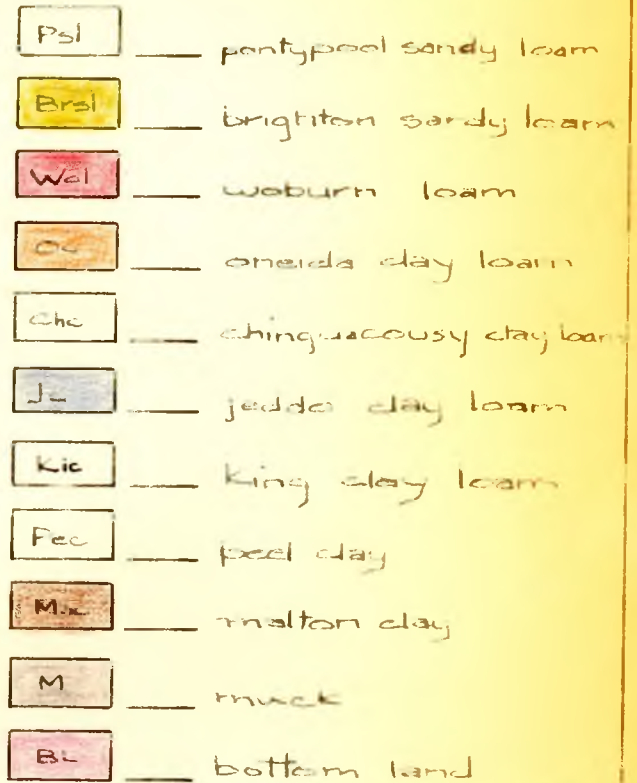 Psl pontypool sandy loam
Brsl brighton sandy loam
Wol woburn loam
oneida clay loam
Chc chinguacousy clay loam
jeddo clay loam
Kic king clay loam
Pec peel clay
malton clay
M muck
BL bottom land